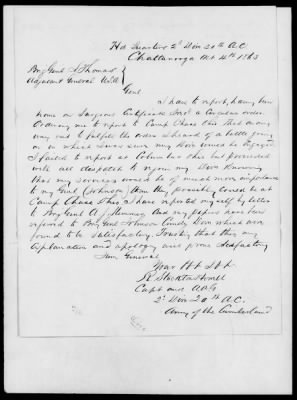 Hd Quarters 2d Div 20th A.C.
Chattanooga Oct 14th 1863
Brig Genl L Thomas
Adjutant General U.S.A.
Genl
I have to report, having been
home on Surgeons Certificate I recd a Circular order
Ordering me to report to Camp Chase Ohio. And on my
way out to fulfill the order I heard of a battle going
on in which I was sure my Div would be engaged
I failed to report at Columbus Ohio but proceeded
with all despatch to rejoin my Div Knowing
that my services would be of much more importance
to my Genl (Johnson) than they possibly could be at
Camp Chase Ohio. I have reported myself by letter
to Brig Genl and my papers have been
referred to Brig Genl Johnson Comdg Div which were
found to be satisfactory. Trusting that this my
explanation and apology will prove satisfactory
I am General
Your Obt Svt
Capt and AAG
2d Div 20th A.C.
Army of the Cumberland